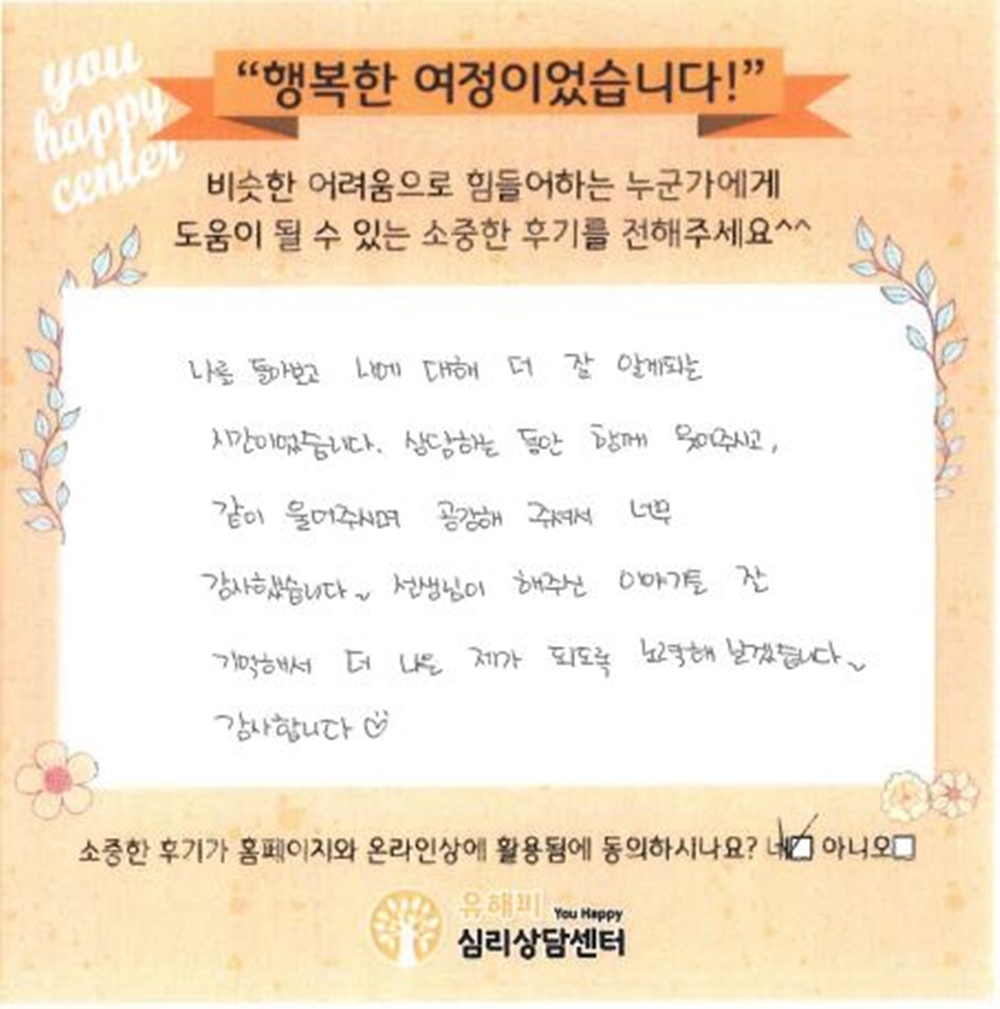 you
happy
center
“행복한 여정이었습니다!”
비슷한 어려움으로 힘들어하는 누군가에게
도움이 될 수 있는 소중한 후기를 전해주세요^^
나를 돌아보고 나에 대해 더 잘 알게되는
시간이었습니다. 상담하는 동안 함께 웃어주시고,
같이 울어주시며 공감해 주셔서 너무
감사했습니다~ 선생님이 해주신 이야기들 잘
기억해서 더 나은 제가 되도록 노력해 보겠습니다~
감사합니다♡
소중한 후기가 홈페이지와 온라인상에 활용됨에 동의하시나요? 네☑ 아니오☐
유해피 You Happy
심리상담센터